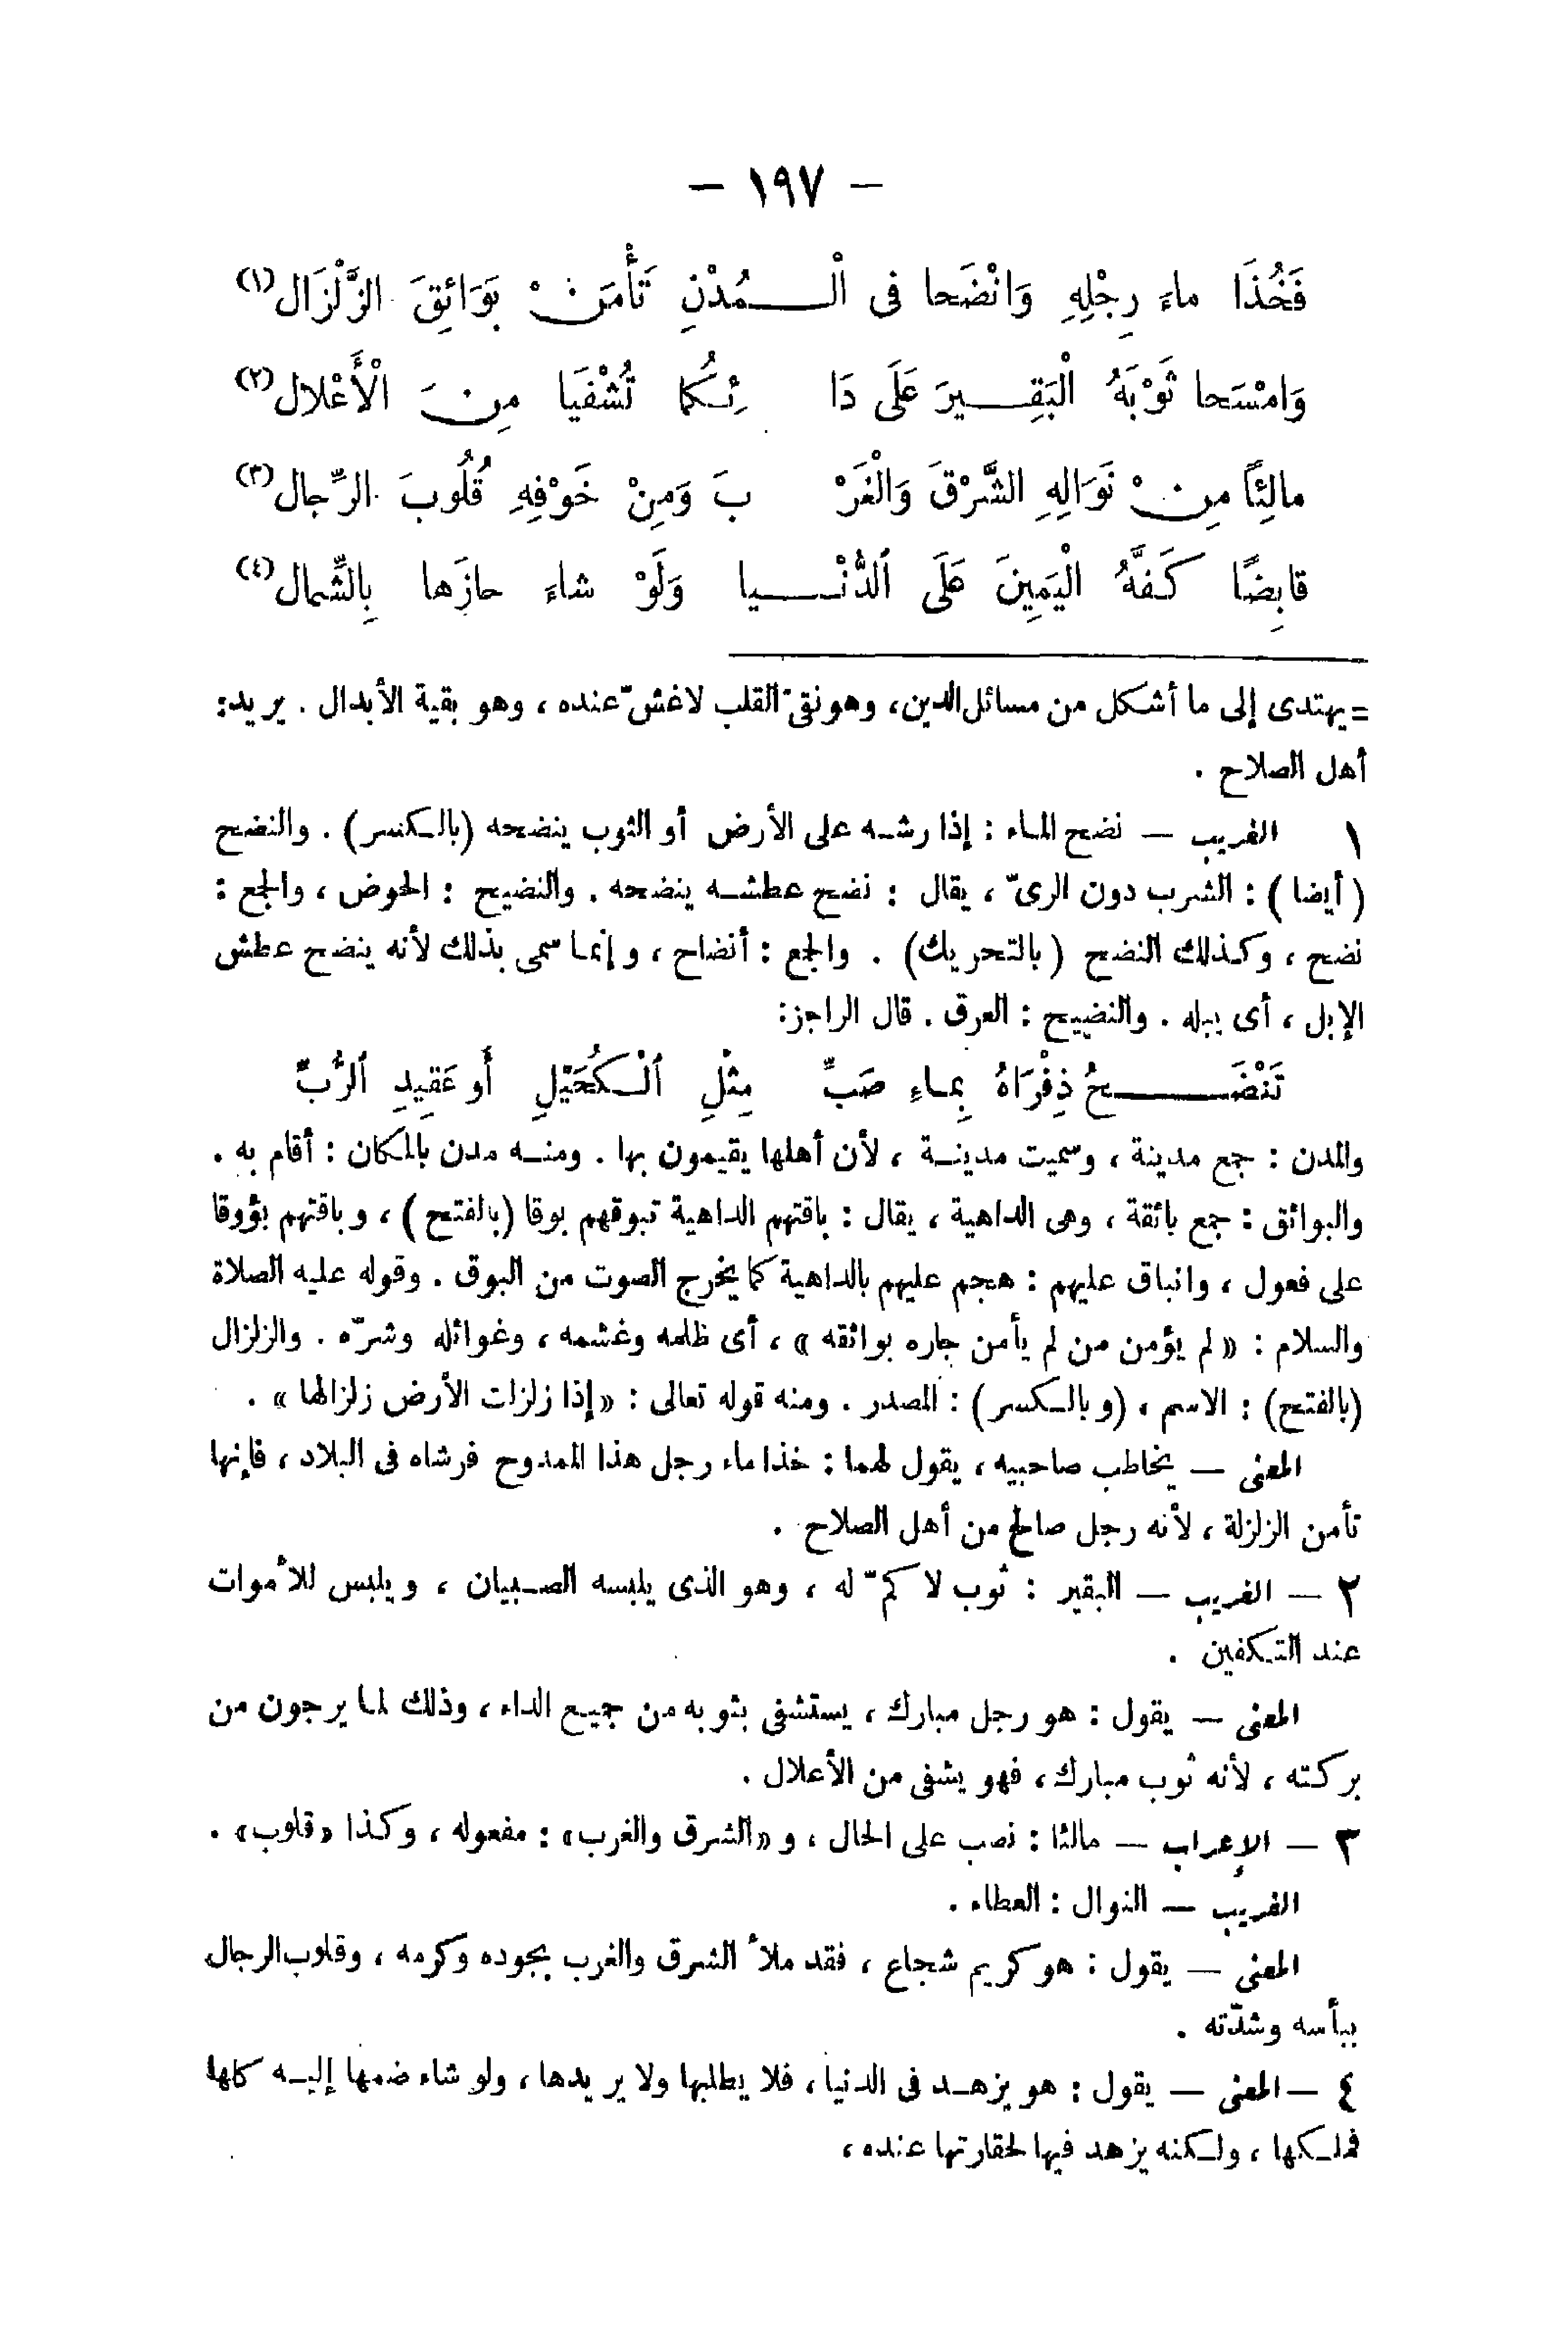 — ١٩٧ —
فَخُذَا ماءَ رِجْلِهِ وَانْضَحا فى الْـمُدْنِ تَأْمَنْ بَوَائِقَ الزَّلْزَال(١)
وَامْسَحا ثَوْبَهُ الْبَقِـيرَ عَلَى دَا ئِكُما تُشْفَيَا مِنَ الْأَعْلال(٢)
مالِئًا مِنْ نَوَالِهِ الشَّرْقَ وَالْغَرْ بَ وَمِنْ خَوْفِهِ قُلُوبَ الرِّجال(٣)
قابِضًا كَفَّهُ الْيَمِينَ عَلَى الدُّنْـيا وَلَوْ شاءَ حازَها بِالشِّمال(٤)
= يهتدى إلى ما أشكل من مسائل الدين، وهو نقىّ القلب لا غشّ عنده ، وهو بقية الأبدال . يريد:
أهل الصلاح .
١ الغريب — نضح الماء : إذا رشه على الأرض أو الثوب ينضحه (بالكسر) . والنضح
(أيضا) : الشرب دون الرىّ ، يقال : نضح عطشه ينضحه . والنضيح : الحوض ، والجمع :
نضح ، وكذلك النضح (بالتحريك) . والجمع : أنضاح ، وإنما سمى بذلك لأنه ينضح عطش
الإبل ، أى يبله . والنضيح : العرق . قال الراجز:
تَنْضَـحُ ذِفْرَاهُ بِماءِ صَبِّ مِثْلِ الْكُحَيْلِ أَو عَقِيدِ الرُّبِّ
والمدن : جمع مدينة ، وسميت مدينة ، لأن أهلها يقيمون بها . ومنه مدن بالمكان : أقام به .
والبوائق : جمع بائقة ، وهى الداهية ، يقال : باقتهم الداهية تبوقهم بوقا (بالفتح) ، وباقتهم بؤوقا
على فعول ، وانباق عليهم : هجم عليهم بالداهية كما يخرج الصوت من البوق . وقوله عليه الصلاة
والسلام : «لم يؤمن من لم يأمن جاره بوائقه» ، أى ظلمه وغشمه ، وغوائله وشرّه . والزلزال
(بالفتح) : الاسم ، (وبالكسر) : المصدر . ومنه قوله تعالى : «إذا زلزلت الأرض زلزالها» .
المعنى — يخاطب صاحبيه ، يقول لهما : خذا ماء رجل هذا الممدوح فرشاه فى البلاد ، فإنها
تأمن الزلزلة ، لأنه رجل صالح من أهل الصلاح .
٢ — الغريب — البقير : ثوب لا كمّ له ، وهو الذى يلبسه الصبيان ، ويلبس للأموات
عند التكفين .
المعنى — يقول : هو رجل مبارك ، يستشفى بثوبه من جميع الداء ، وذلك لما يرجون من
بركته ، لأنه ثوب مبارك ، فهو يشفى من الأعلال .
٣ — الإعراب — مالئا : نصب على الحال ، و«الشرق والغرب» : مفعوله ، وكذا «قلوب» .
الغريب — النوال : العطاء .
المعنى — يقول : هو كريم شجاع ، فقد ملأ الشرق والغرب بجوده وكرمه ، وقلوب الرجال
ببأسه وشدّته .
٤ — المعنى — يقول : هو يزهد فى الدنيا ، فلا يطلبها ولا يريدها ، ولو شاء ضمها إليه كلها
فملكها ، ولكنه يزهد فيها لحقارتها عنده ،